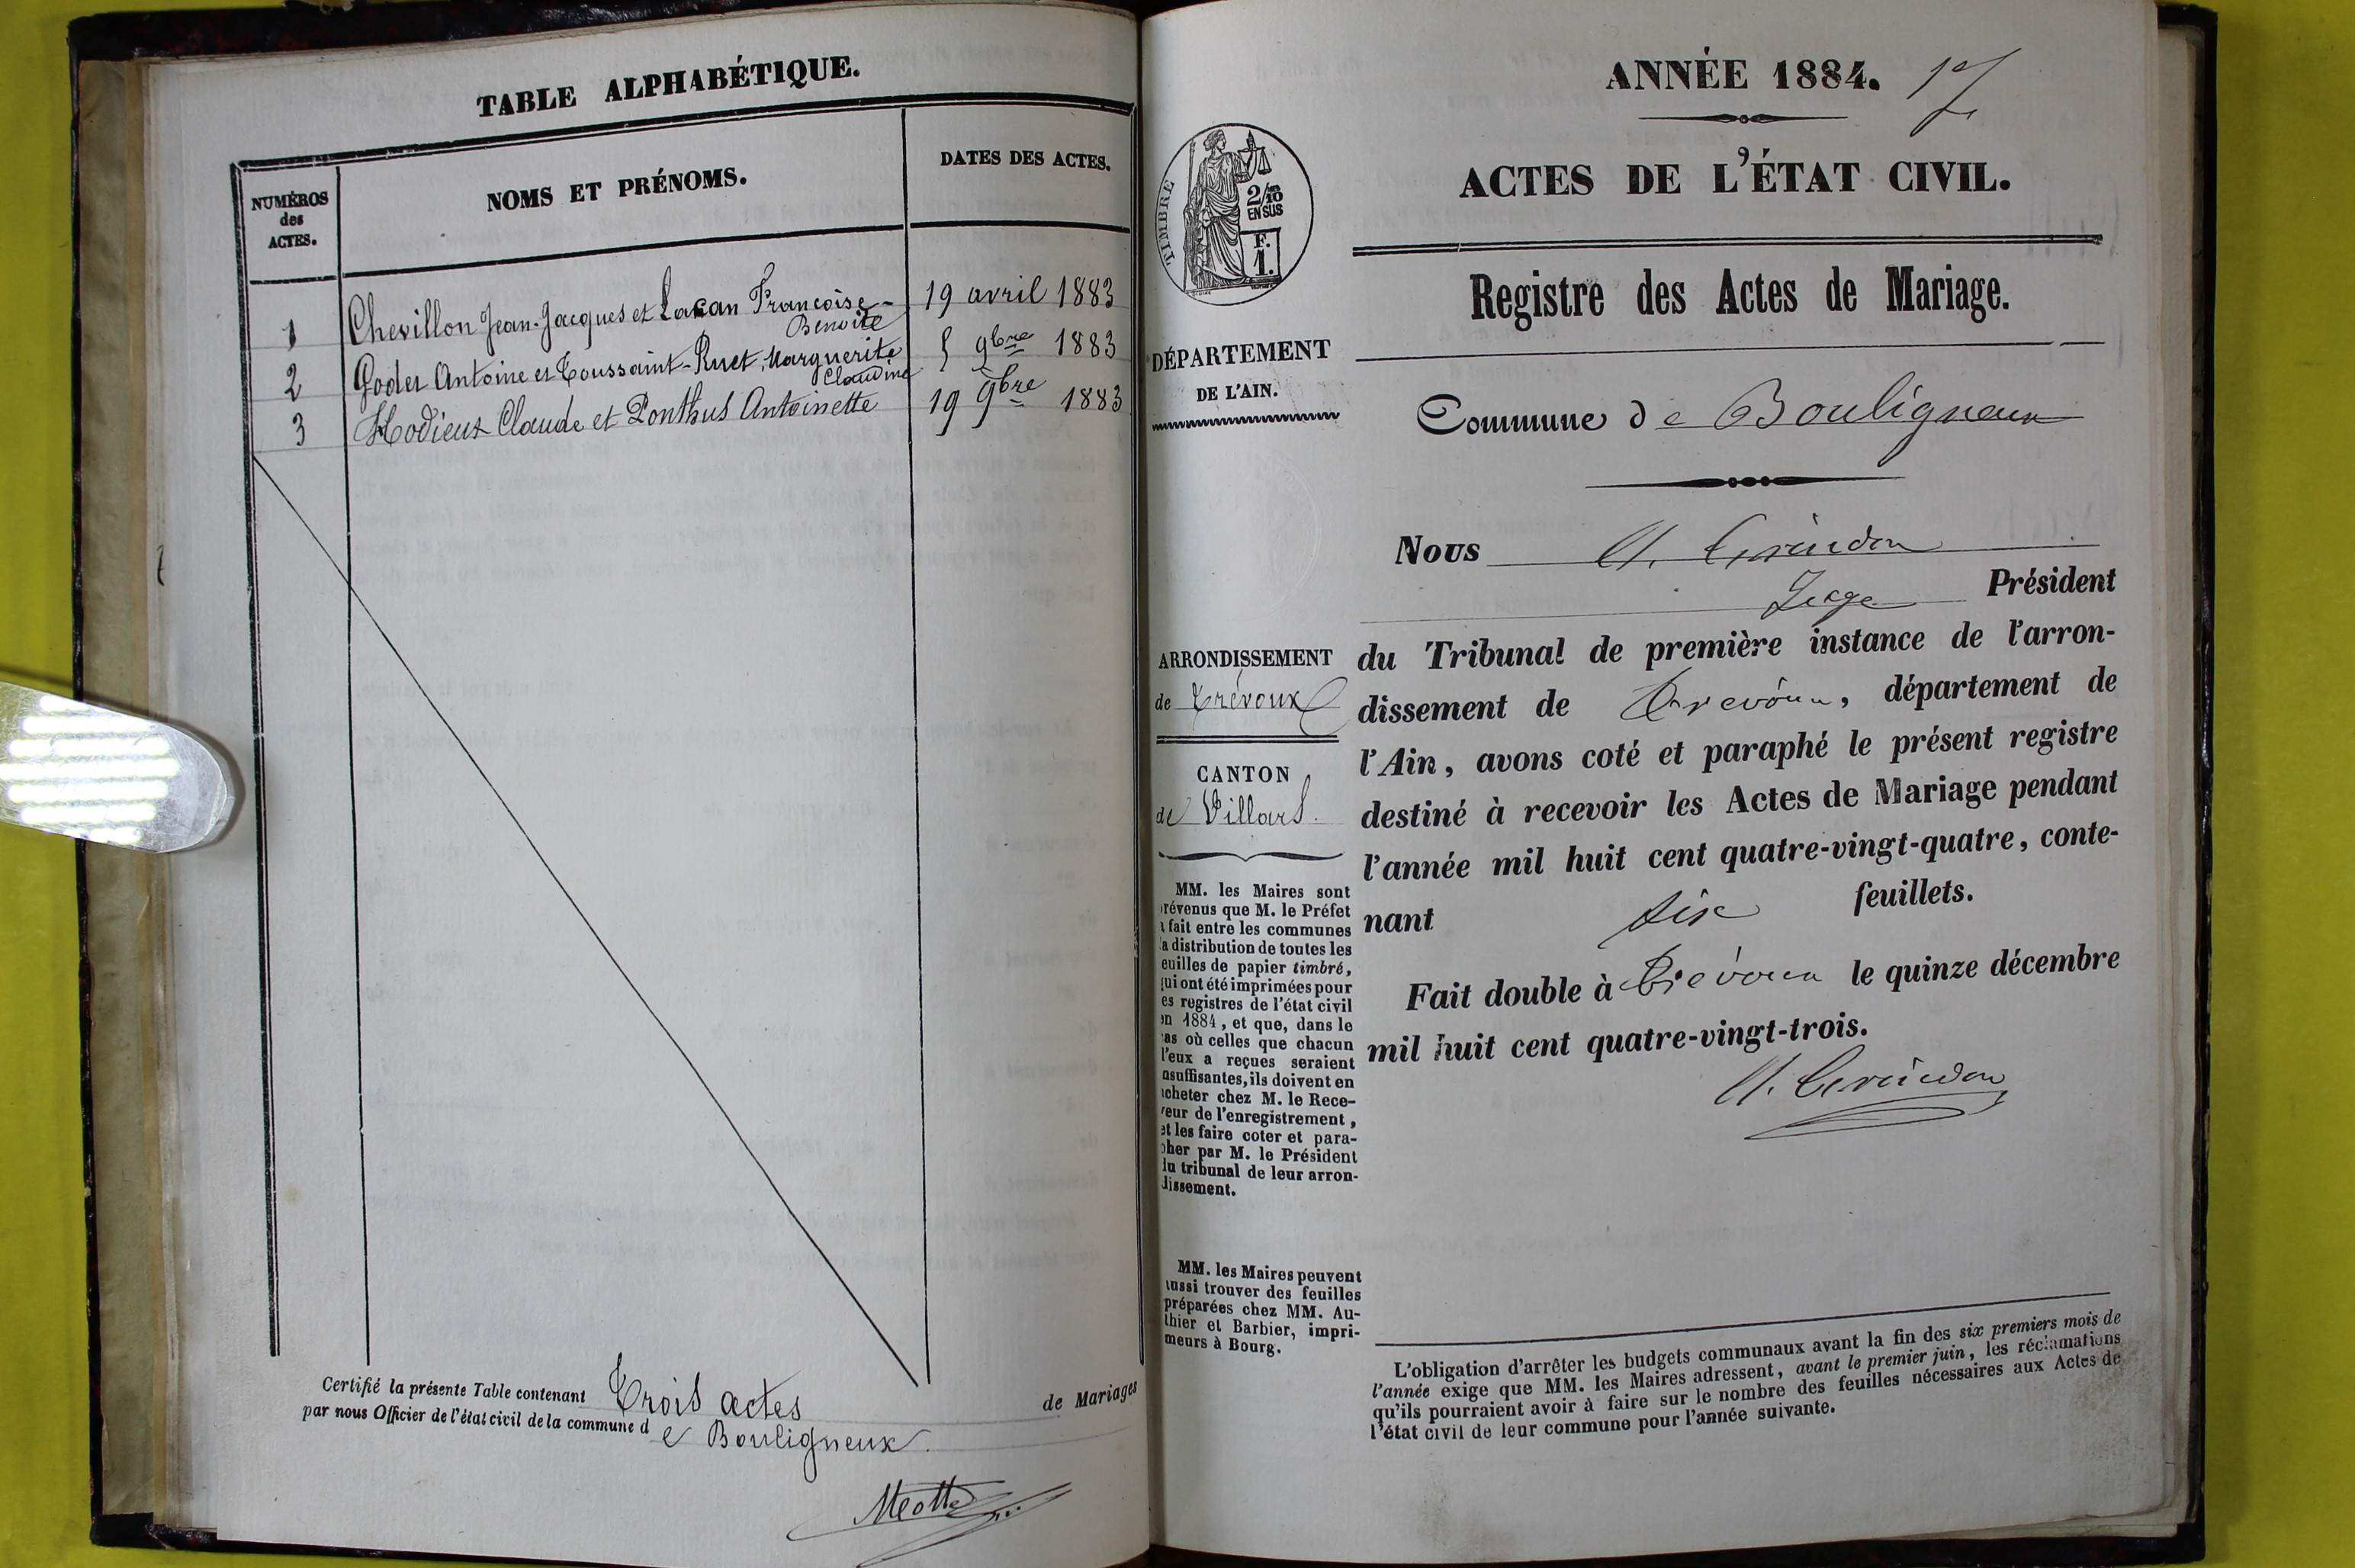 TABLE ALPHABÉTIQUE.
NUMÉROS
des
ACTES.
NOMS ET PRÉNOMS.
DATES DES ACTES.
1 Chevillon Jean-Jacques et Lacan Françoise- 19 avril 1883
Benoite
2 Goder Antoine et Toussaint-Ruet, Marguerite 5 9bre 1883
Claudine
3 Hodieux Claude et Ponthus Antoinette 19 9bre 1883
Certifié la présente Table contenant Trois actes de Mariages
par nous Officier de l'état civil de la commune d e Bouligneux.
ANNÉE 1884.
ACTES DE L'ÉTAT CIVIL.
TIMBRE
2/10
EN SUS
F.
1.
Registre des Actes de Mariage.
DÉPARTEMENT
DE L'AIN.
Commune de Bouligneux
Nous
Juge Président
ARRONDISSEMENT
de Trévoux
CANTON
de Villars.
du Tribunal de première instance de l'arron-
dissement de Trevoux, département de
l'Ain, avons coté et paraphé le présent registre
destiné à recevoir les Actes de Mariage pendant
l'année mil huit cent quatre-vingt-quatre, conte-
nant six feuillets.
Fait double à Trévoux le quinze décembre
mil huit cent quatre-vingt-trois.
MM. les Maires sont
révenus que M. le Préfet
a fait entre les communes
la distribution de toutes les
euilles de papier timbré,
qui ont été imprimées pour
es registres de l'état civil
en 1884, et que, dans le
as où celles que chacun
l'eux a reçues seraient
nsuffisantes, ils doivent en
acheter chez M. le Rece-
veur de l'enregistrement,
et les faire coter et para-
pher par M. le Président
du tribunal de leur arron-
dissement.
MM. les Maires peuvent
aussi trouver des feuilles
préparées chez MM. Au-
thier et Barbier, impri-
meurs à Bourg.
L'obligation d'arrêter les budgets communaux avant la fin des six premiers mois de
l'année exige que MM. les Maires adressent, avant le premier juin, les réclamations
qu'ils pourraient avoir à faire sur le nombre des feuilles nécessaires aux Actes de
l'état civil de leur commune pour l'année suivante.